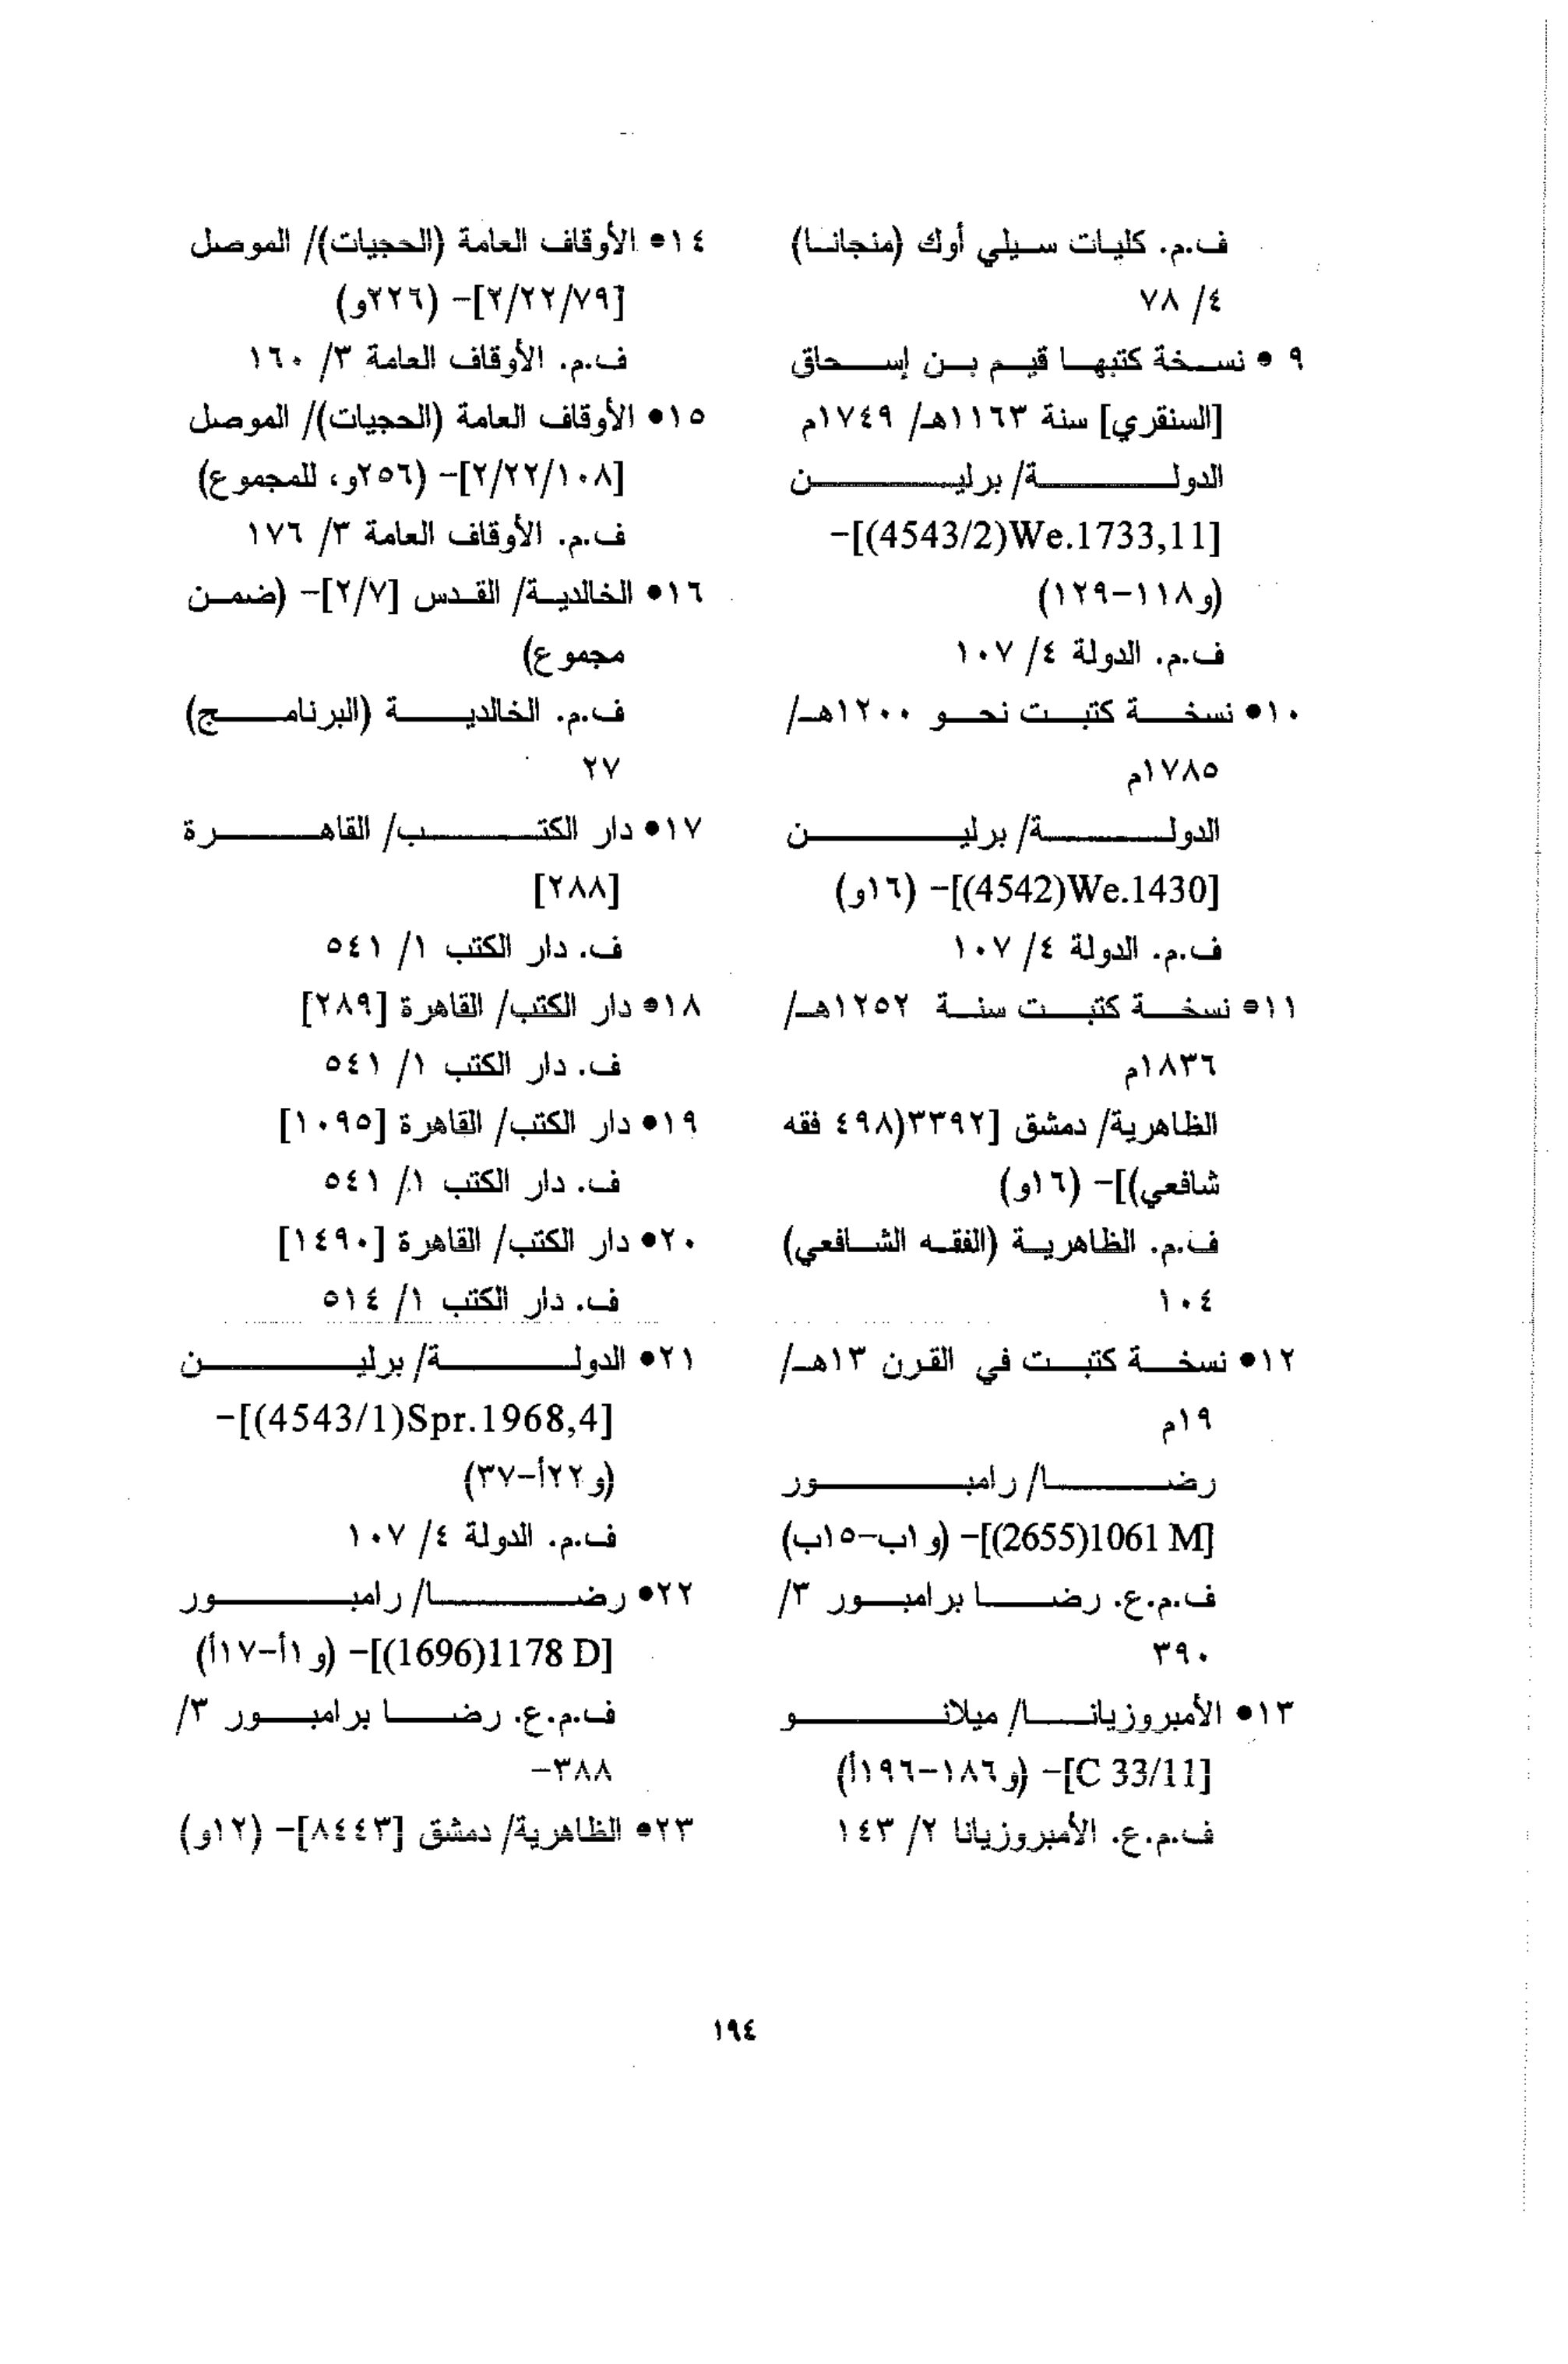 ف.م. كليات سيلي أوك (منجانا)
٤/ ٧٨
٩ • نسخة كتبها قيم بن إسحاق
[السنقري] سنة ١١٦٣هـ/ ١٧٤٩م
الدولة/ برلين
[We.1733,11(4543/2)]-
(و١١٨-١٢٩)
ف.م. الدولة ٤/ ١٠٧
١٠• نسخة كتبت نحو ١٢٠٠هـ/
١٧٨٥م
الدولة/ برلين
[We.1430(4542)]- (١٦و)
ف.م. الدولة ٤/ ١٠٧
١١• نسخة كتبت سنة ١٢٥٢هـ/
١٨٣٦م
الظاهرية/ دمشق [٣٣٩٢(٤٩٨ فقه
شافعي)]- (١٦و)
ف.م. الظاهرية (الفقه الشافعي)
١٠٤
١٢• نسخة كتبت في القرن ١٣هـ/
١٩م
رضا/ رامبور
[1061 M(2655)]- (و١ب-١٥ب)
ف.م.ع. رضا برامبور ٣/
٣٩٠
١٣• الأمبروزيانا/ ميلانو
[C 33/11]- (و١٨٦-١٩٦أ)
ف.م.ع. الأمبروزيانا ٢/ ١٤٣
١٤• الأوقاف العامة (الحجيات)/ الموصل
[٢/٢٢/٧٩]- (٢٢٦و)
ف.م. الأوقاف العامة ٣/ ١٦٠
١٥• الأوقاف العامة (الحجيات)/ الموصل
[٢/٢٢/١٠٨]- (٢٥٦و، للمجموع)
ف.م. الأوقاف العامة ٣/ ١٧٦
١٦• الخالدية/ القدس [٢/٧]- (ضمن
مجموع)
ف.م. الخالدية (البرنامج)
٢٧
١٧• دار الكتب/ القاهرة
[٢٨٨]
ف. دار الكتب ١/ ٥٤١
١٨• دار الكتب/ القاهرة [٢٨٩]
ف. دار الكتب ١/ ٥٤١
١٩• دار الكتب/ القاهرة [١٠٩٥]
ف. دار الكتب ١/ ٥٤١
٢٠• دار الكتب/ القاهرة [١٤٩٠]
ف. دار الكتب ١/ ٥١٤
٢١• الدولة/ برلين
[Spr.1968,4(4543/1)]-
(و٢٢أ-٣٧)
ف.م. الدولة ٤/ ١٠٧
٢٢• رضا/ رامبور
[1178 D(1696)]- (و١أ-١٧أ)
ف.م.ع. رضا برامبور ٣/
٣٨٨-
٢٣• الظاهرية/ دمشق [٨٤٤٣]- (١٢و)
١٩٤